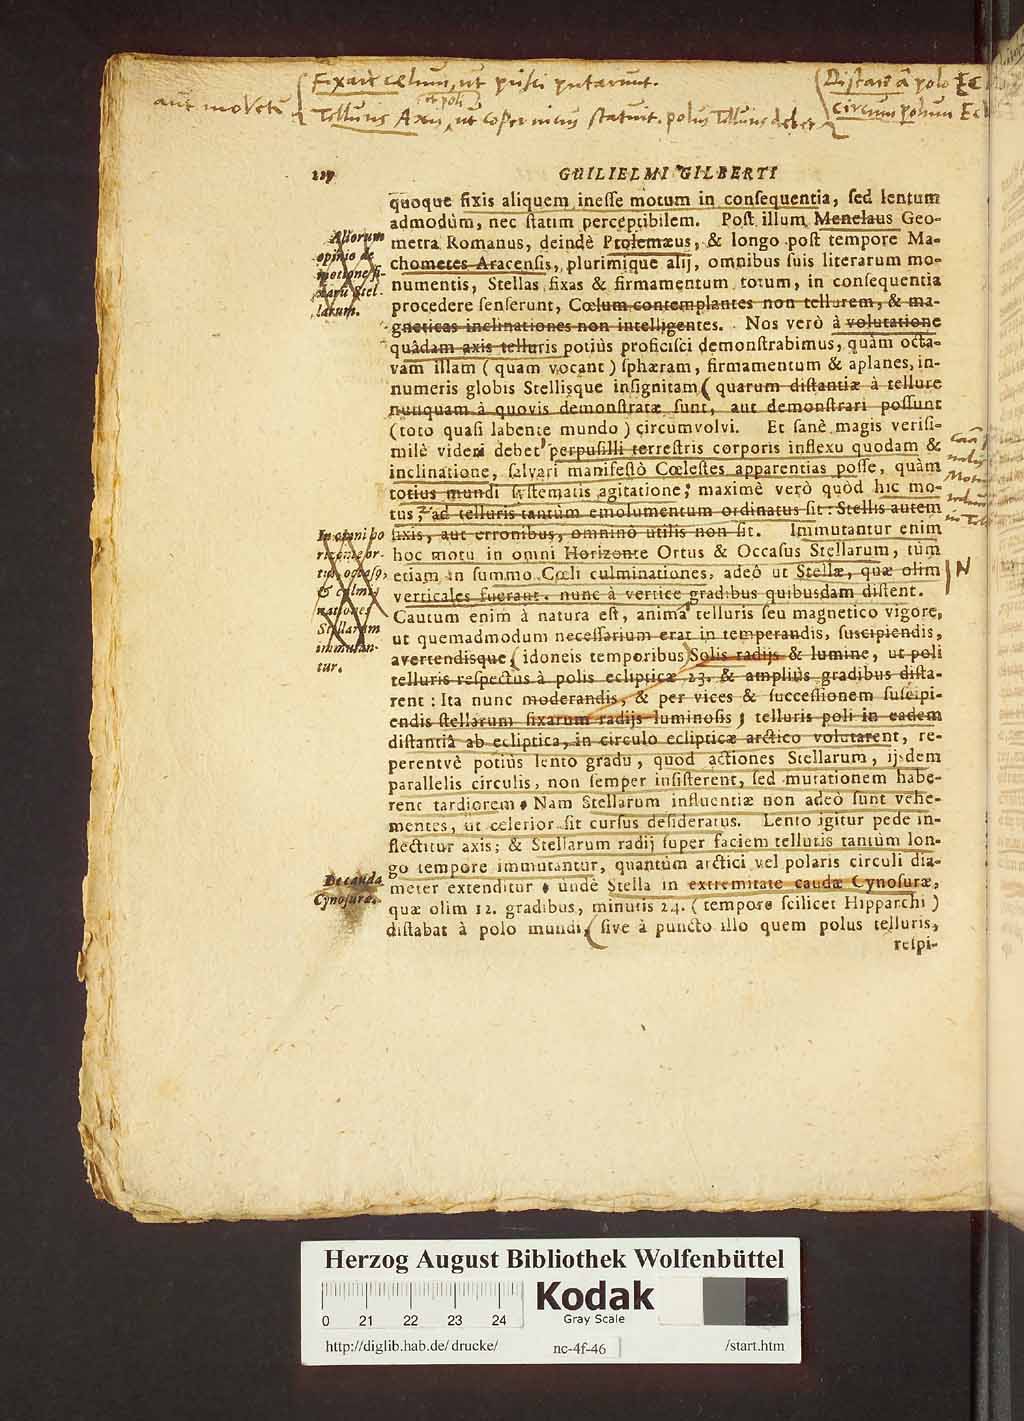 Fixarū cælum, ut prisci putarunt.
aut movetur
et poli
Telluris Axis, ut copernicus statuit. polus Telluris debet
Distare à polo Ec
circum polum Ec
GUILIELMI GILBERTI
quoque fixis aliquem inesse motum in consequentia, sed lentum
admodùm, nec statim perceptibilem. Post illum Menelaus Geo-
metra Romanus, deindè Ptolemæus, & longo post tempore Ma-
chometes Aracensis, plurimique alij, omnibus suis literarum mo-
numentis, Stellas fixas & firmamentum totum, in consequentia
procedere senserunt, Cœlum contemplantes non tellurem, & ma-
gneticas inclinationes non intelligentes. Nos verò à volutatione
quâdam axis telluris potiùs proficisci demonstrabimus, quàm octa-
vam illam (quam vocant) sphæram, firmamentum & aplanes, in-
numeris globis Stellisque insignitam (quarum distantiæ à tellure
nutiquam à quovis demonstratæ sunt, aut demonstrari possunt
(toto quasi labente mundo) circumvolvi. Et sanè magis verisi-
milè videri debet perpusilli terrestris corporis inflexu quodam &
inclinatione, salvari manifestò Cœlestes apparentias posse, quàm
totius mundi systematis agitatione; maximè verò quòd hic mo-
tus, ad telluris tantùm emolumentum ordinatus sit: Stellis autem
fixis, aut erronibus, omninò utilis non sit. Immutantur enim
hoc motu in omni Horizonte Ortus & Occasus Stellarum, tùm
etiam in summo Cœli culminationes, adeò ut Stellæ, quæ olim
verticales fuerant, nunc à vertice gradibus quibusdam distent.
Cautum enim à natura est, animâ telluris seu magnetico vigore,
ut quemadmodum necessarium erat in temperandis, suscipiendis,
avertendisque (idoneis temporibus) Solis radijs & lumine, ut poli
telluris respectùs à polis eclipticæ 23. & ampliùs gradibus dista-
rent: Ita nunc moderandis, & per vices & successionem suscipi-
endis stellarum fixarum radijs luminosis, telluris poli in eadem
distantiâ ab ecliptica, in circulo eclipticæ arctico volutarent, re-
perentvè potiùs lento gradu, quod actiones Stellarum, ijsdem
parallelis circulis, non semper insisterent, sed mutationem habe-
rent tardiorem. Nam Stellarum influentiæ non adeò sunt vehe-
mentes, ut celerior sit cursus desideratus. Lento igitur pede in-
flectitur axis; & Stellarum radij super faciem telluris tantùm lon-
go tempore immutantur, quantùm arctici vel polaris circuli dia-
meter extenditur. undè Stella in extremitate caudæ Cynosuræ,
quæ olim 12. gradibus, minutis 24. (tempore scilicet Hipparchi)
distabat à polo mundi, (sive à puncto illo quem polus telluris,
respi-
Aliorum
opinio de
motione fi-
xarū Stel-
larum.
In omni ho
rizonte or-
tus, occasꝰ,
& culmi-
nationes
Stellarum
immutan-
tur.
N
De cauda
Cynosuræ.
Herzog August Bibliothek Wolfenbüttel
0 21 22 23 24
Kodak
Gray Scale
http://diglib.hab.de/drucke/
nc-4f-46
/start.htm